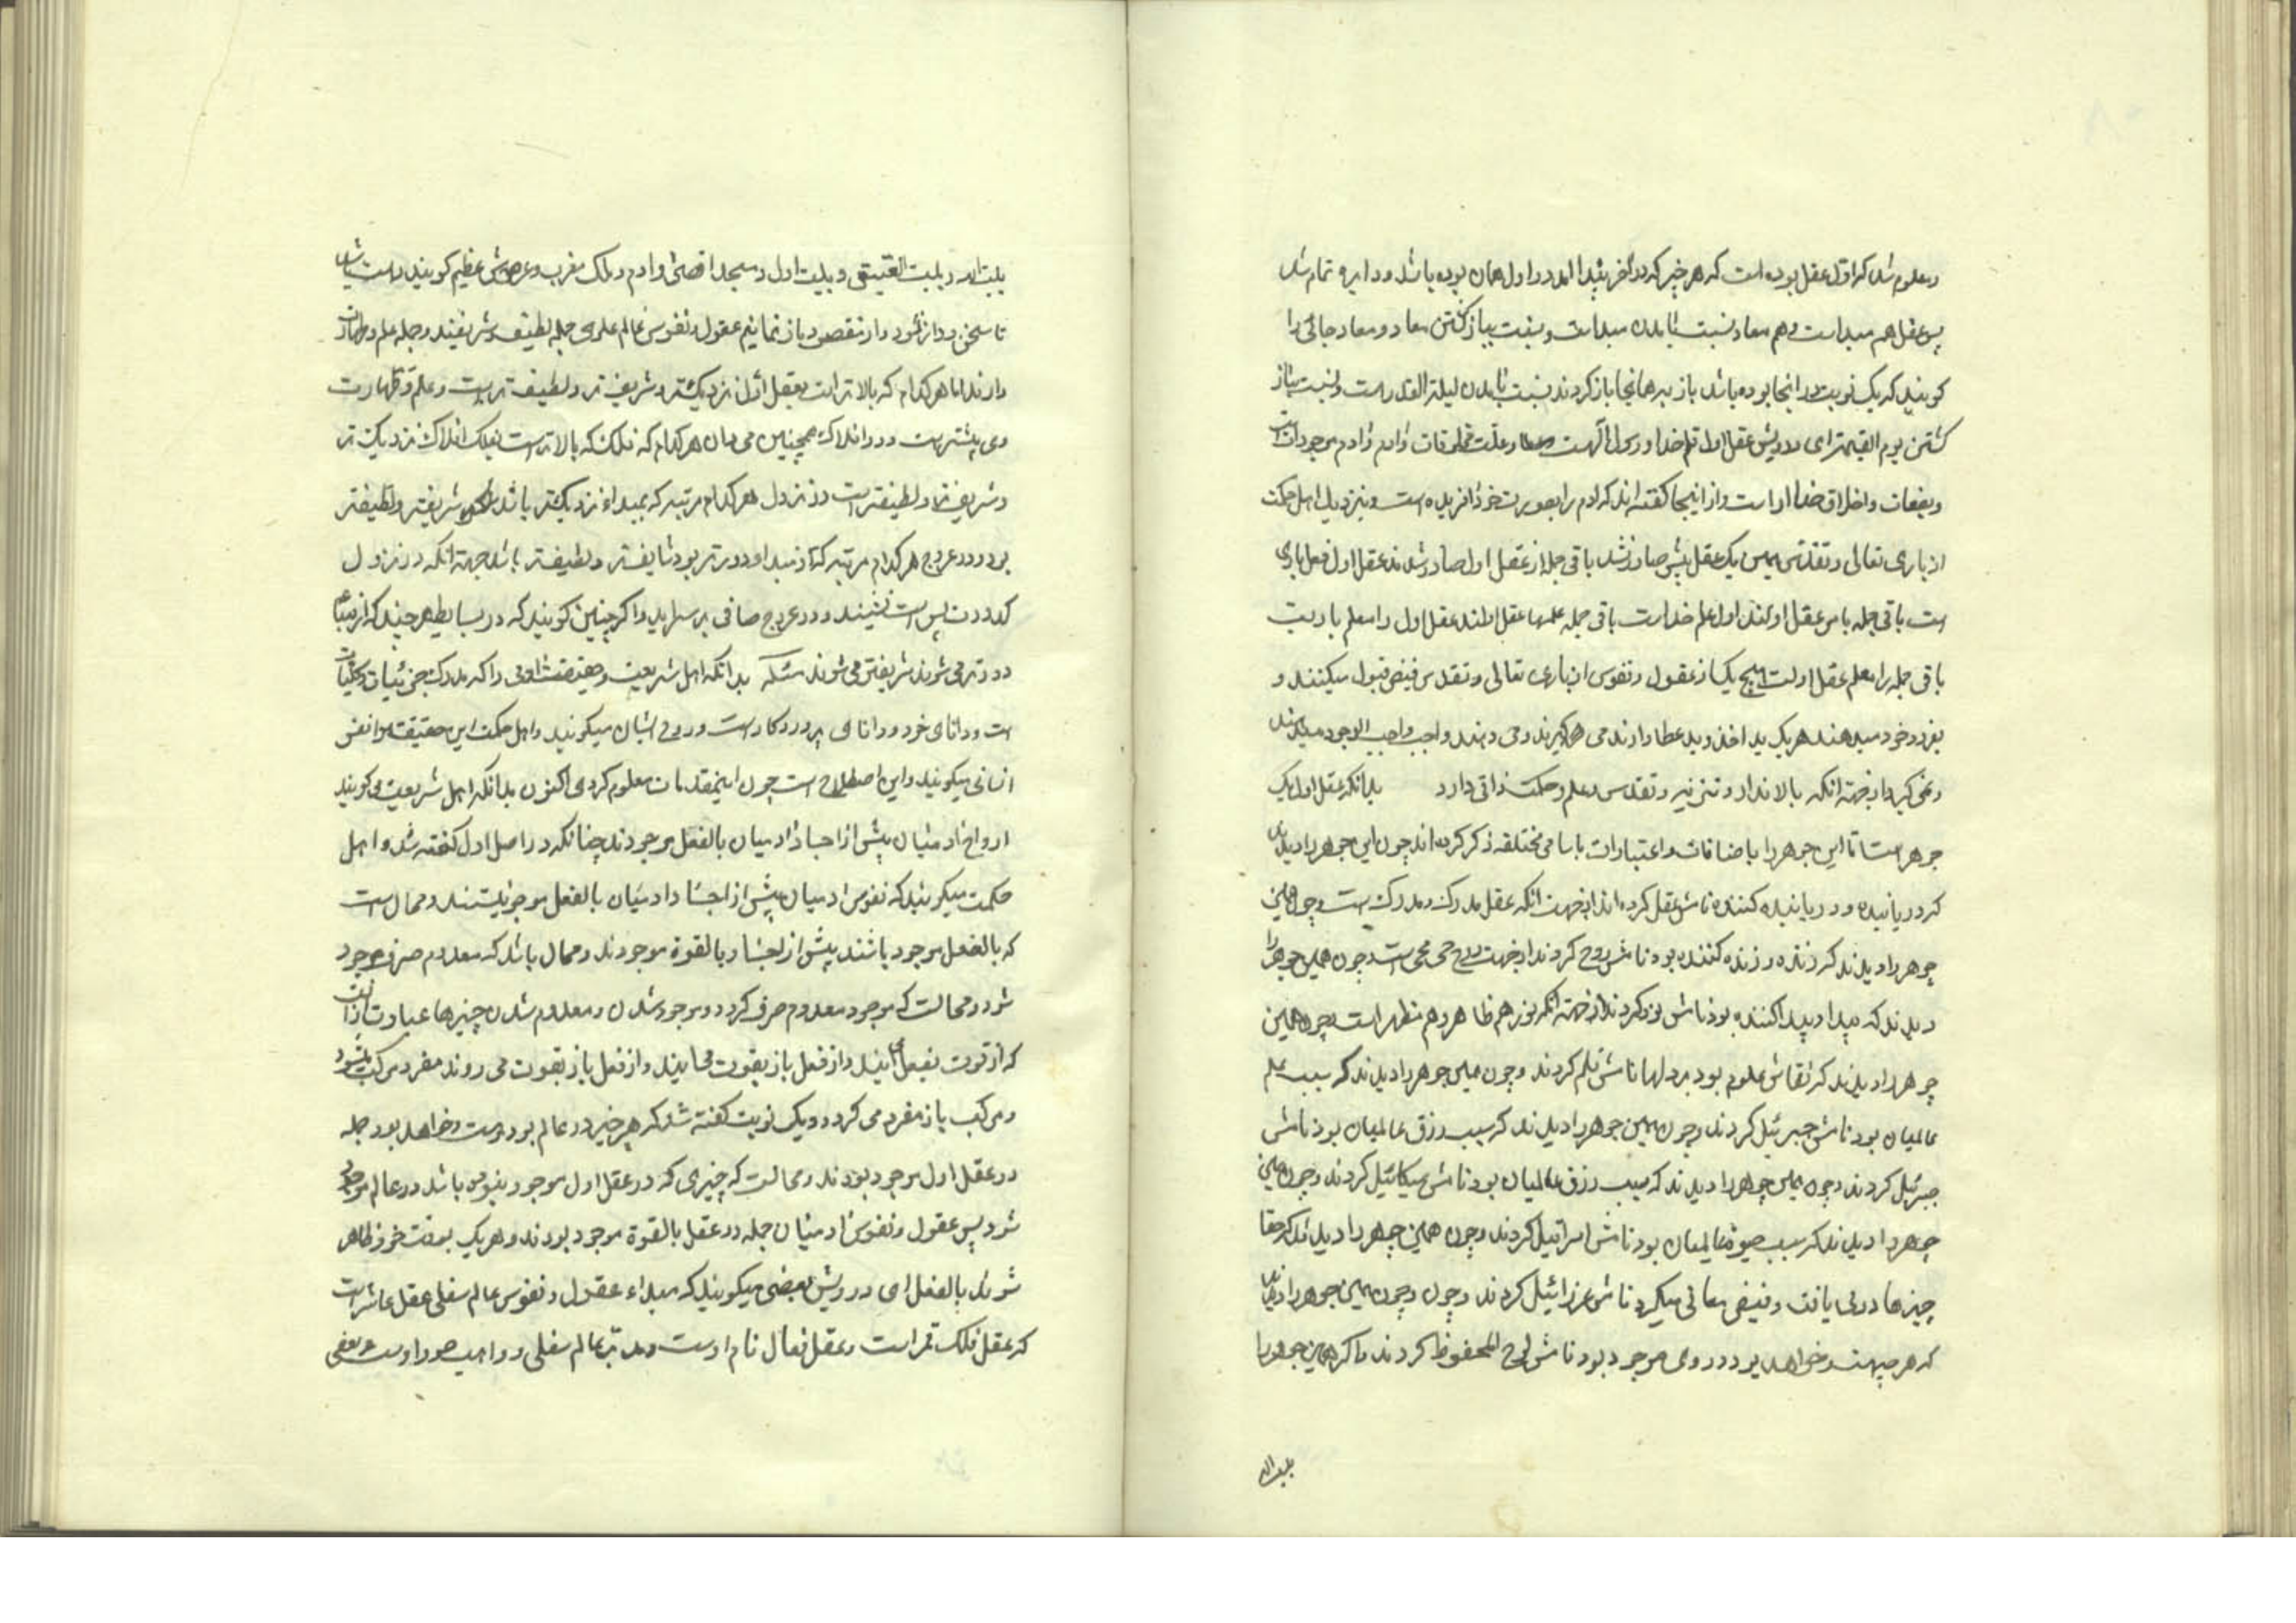 و معلوم شد که اول عقل بوده است که هر چیز که در آخر پیدا آمد در اول همان بوده باشد و دایره تمام شد
پس عقل هم مبدا است و هم معاد نسبت بامدن مبدا ست و نسبت بباز گشتن معاد و معاد جائی را
گویند که یک نوبت در انجا بوده باشد باز بدهانجا باز گردند نسبت بامدن لیلة القدر است و نسبت بباز
گشتن یوم القیمة ای درویش عقل اول قلم خدا و رسول الله است و علت مخلوقات و ادم و ادم موجودات است
و بصفات و اخلاق خدا اراست و از اینجا گفته اند که ادم را بصورت خود افریده است و نزدیک اهل حکمت
از باری تعالی و تقدس همین یک عقل بیش صادر نشد باقی جمله از عقل اول صادر شدند عقل اول فعل باری
است باقی جمله با من عقل اولند اول علم خداست باقی جمله علمها عقل اولند عقل اول را معلم باریت
باقی جمله را معلم عقل اولست هیچ یک از عقول و نفوس از باری تعالی و تقدس فیض قبول میکنند و
بفرود خود میدهند هر یک ید اخذ و ید عطا دارند می گیرند و می دهند واجب واجب الوجود میدهند
و نمی گیرد از جهة انکه بالا ندارد و تنزیه و تقدس و علم و حکمت ذاتی دارد بدانکه عقل اول یک
جوهر است اما این جوهر را باضافات و اعتبارات باسامی مختلفه ذکر کرده اند چون این جوهر را دیدند
که دریابنده و دریابنده کننده نامش عقل کرده اند از جهت انکه عقل مدرک و مدرک است و چون همین
جوهر را دیدند که زنده و زنده کننده بود نامش روح کردند از جهت روح حی محیی است و چون همین جوهر را
دیدند که پیدا و پیدا کننده بود نامش نور کردند از جهة انکه نور هم ظاهر و هم مظهر است و چون همین
جوهر را دیدند که نقاش علوم بود بر دلها نامش قلم کردند و چون همین جوهر را دیدند که سبب علم
عالمیان بود نامش جبرئیل کردند و چون همین جوهر را دیدند که سبب رزق عالمیان بود نامش
جبرئیل کردند و چون همین جوهر را دیدند که سبب رزق عالمیان بود نامش میکائیل کردند و چون همین
جوهر را دیدند که سبب حیوة عالمیان بود نامش اسرافیل کردند و چون همین جوهر را دیدند که حقا
چیزها در می یافت و قبض معانی میکرد نامش عزرائیل کردند و چون و چون همین جوهر را دیدند
که هر چه هست و خواهد بود در وی موجود بود نامش لوح المحفوظ کردند و اگر همین جوهر را
بیت الله
بیت الله و بیت العتیق و بیت اول و مسجد اقصی و ادم و ملک مقرب و عرش عظیم گویند راست باشد
تا سخن دراز نشود و از مقصود باز نمانیم عقول و نفوس عالم علوی جمله لطیف و شریفند و جمله علم و طهارت
دارند اما هر کدام که بالا تر است بعقل اول نزدیکتر و شریف تر و لطیف تر است و علم و طهارت
وی بیشتر است و در افلاک همچنین می دان هر کدام که فلک که بالا تر است بفلک افلاک نزدیک تر
و شریف تر و لطیفتر است در نزول هر کدام مرتبه که بمبداء نزدیکتر باشد شریفتر و لطیفتر
بود و در عروج هر کدام مرتبه که از مبدا دورتر بود شریفتر و لطیفتر باشد جهة انکه در نزول
کدورت پس است نشیند و در عروج صافی بر سر اید و اگر چنین گویند که در بسایط هر چند که از مبدا
دورتر می شوند شریفتر می شوند مسئله بدانکه اهل شریعت و حقیقت ادمی را که مدرک جزئیات و کلیات
است و دانای خود و دانای پروردگار است و روح انسان میگویند و اهل حکمت این حقیقت را نفس
انسانی میگویند و این اصطلاح است چون این مقدمات معلوم کردی اکنون بدانکه اهل شریعت می گویند
ارواح ادمیان پیش از اجساد ادمیان بالفعل موجودند چنانکه در اصل اول گفته شد و اهل
حکمت میگویند که نفوس ادمیان پیش از اجساد ادمیان بالفعل موجود نیستند و محال است
که بالفعل موجود باشند پیش از اجسا و بالقوة موجودند و محال باشد که معدوم صرف موجود
شود و محالست که موجود معدوم صرف گردد و موجود شدن و معدوم شدن چیزها عبارت از ان است
که از قوت بفعل می ایند و از فعل باز بقوت می ایند و از فعل باز بقوت می روند مفرد مرکب میشود
و مرکب باز مفرد می گردد و یک نوبت گفته شد که هر چیز در عالم بود و هست و خواهد بود جمله
در عقل اول موجود بودند و محالست که چیزی که در عقل اول موجود نبوده باشد در عالم موجود
شود پس عقول و نفوس ادمیان جمله در عقل بالقوة موجود بودند و هر یک بوقت خود ظاهر
شوند بالفعل ای درویش بعضی میگویند که مبداء عقول و نفوس عالم سفلی عقل عاشر است
که عقل فلک قمر است و عقل فعال نام اوست و مدبر عالم سفلی و واهب صور اوست و بعضی